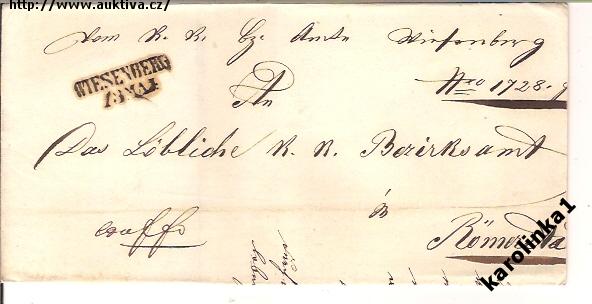 http://www.auktiva.cz/
Vom K. K. Bz. Amte Wiesenberg
WIESENBERG
13. MAI
Nro 1728.
An
Das Löbliche K. K. Bezirksamt
in
exoffo
Römerstadt
karolinka1